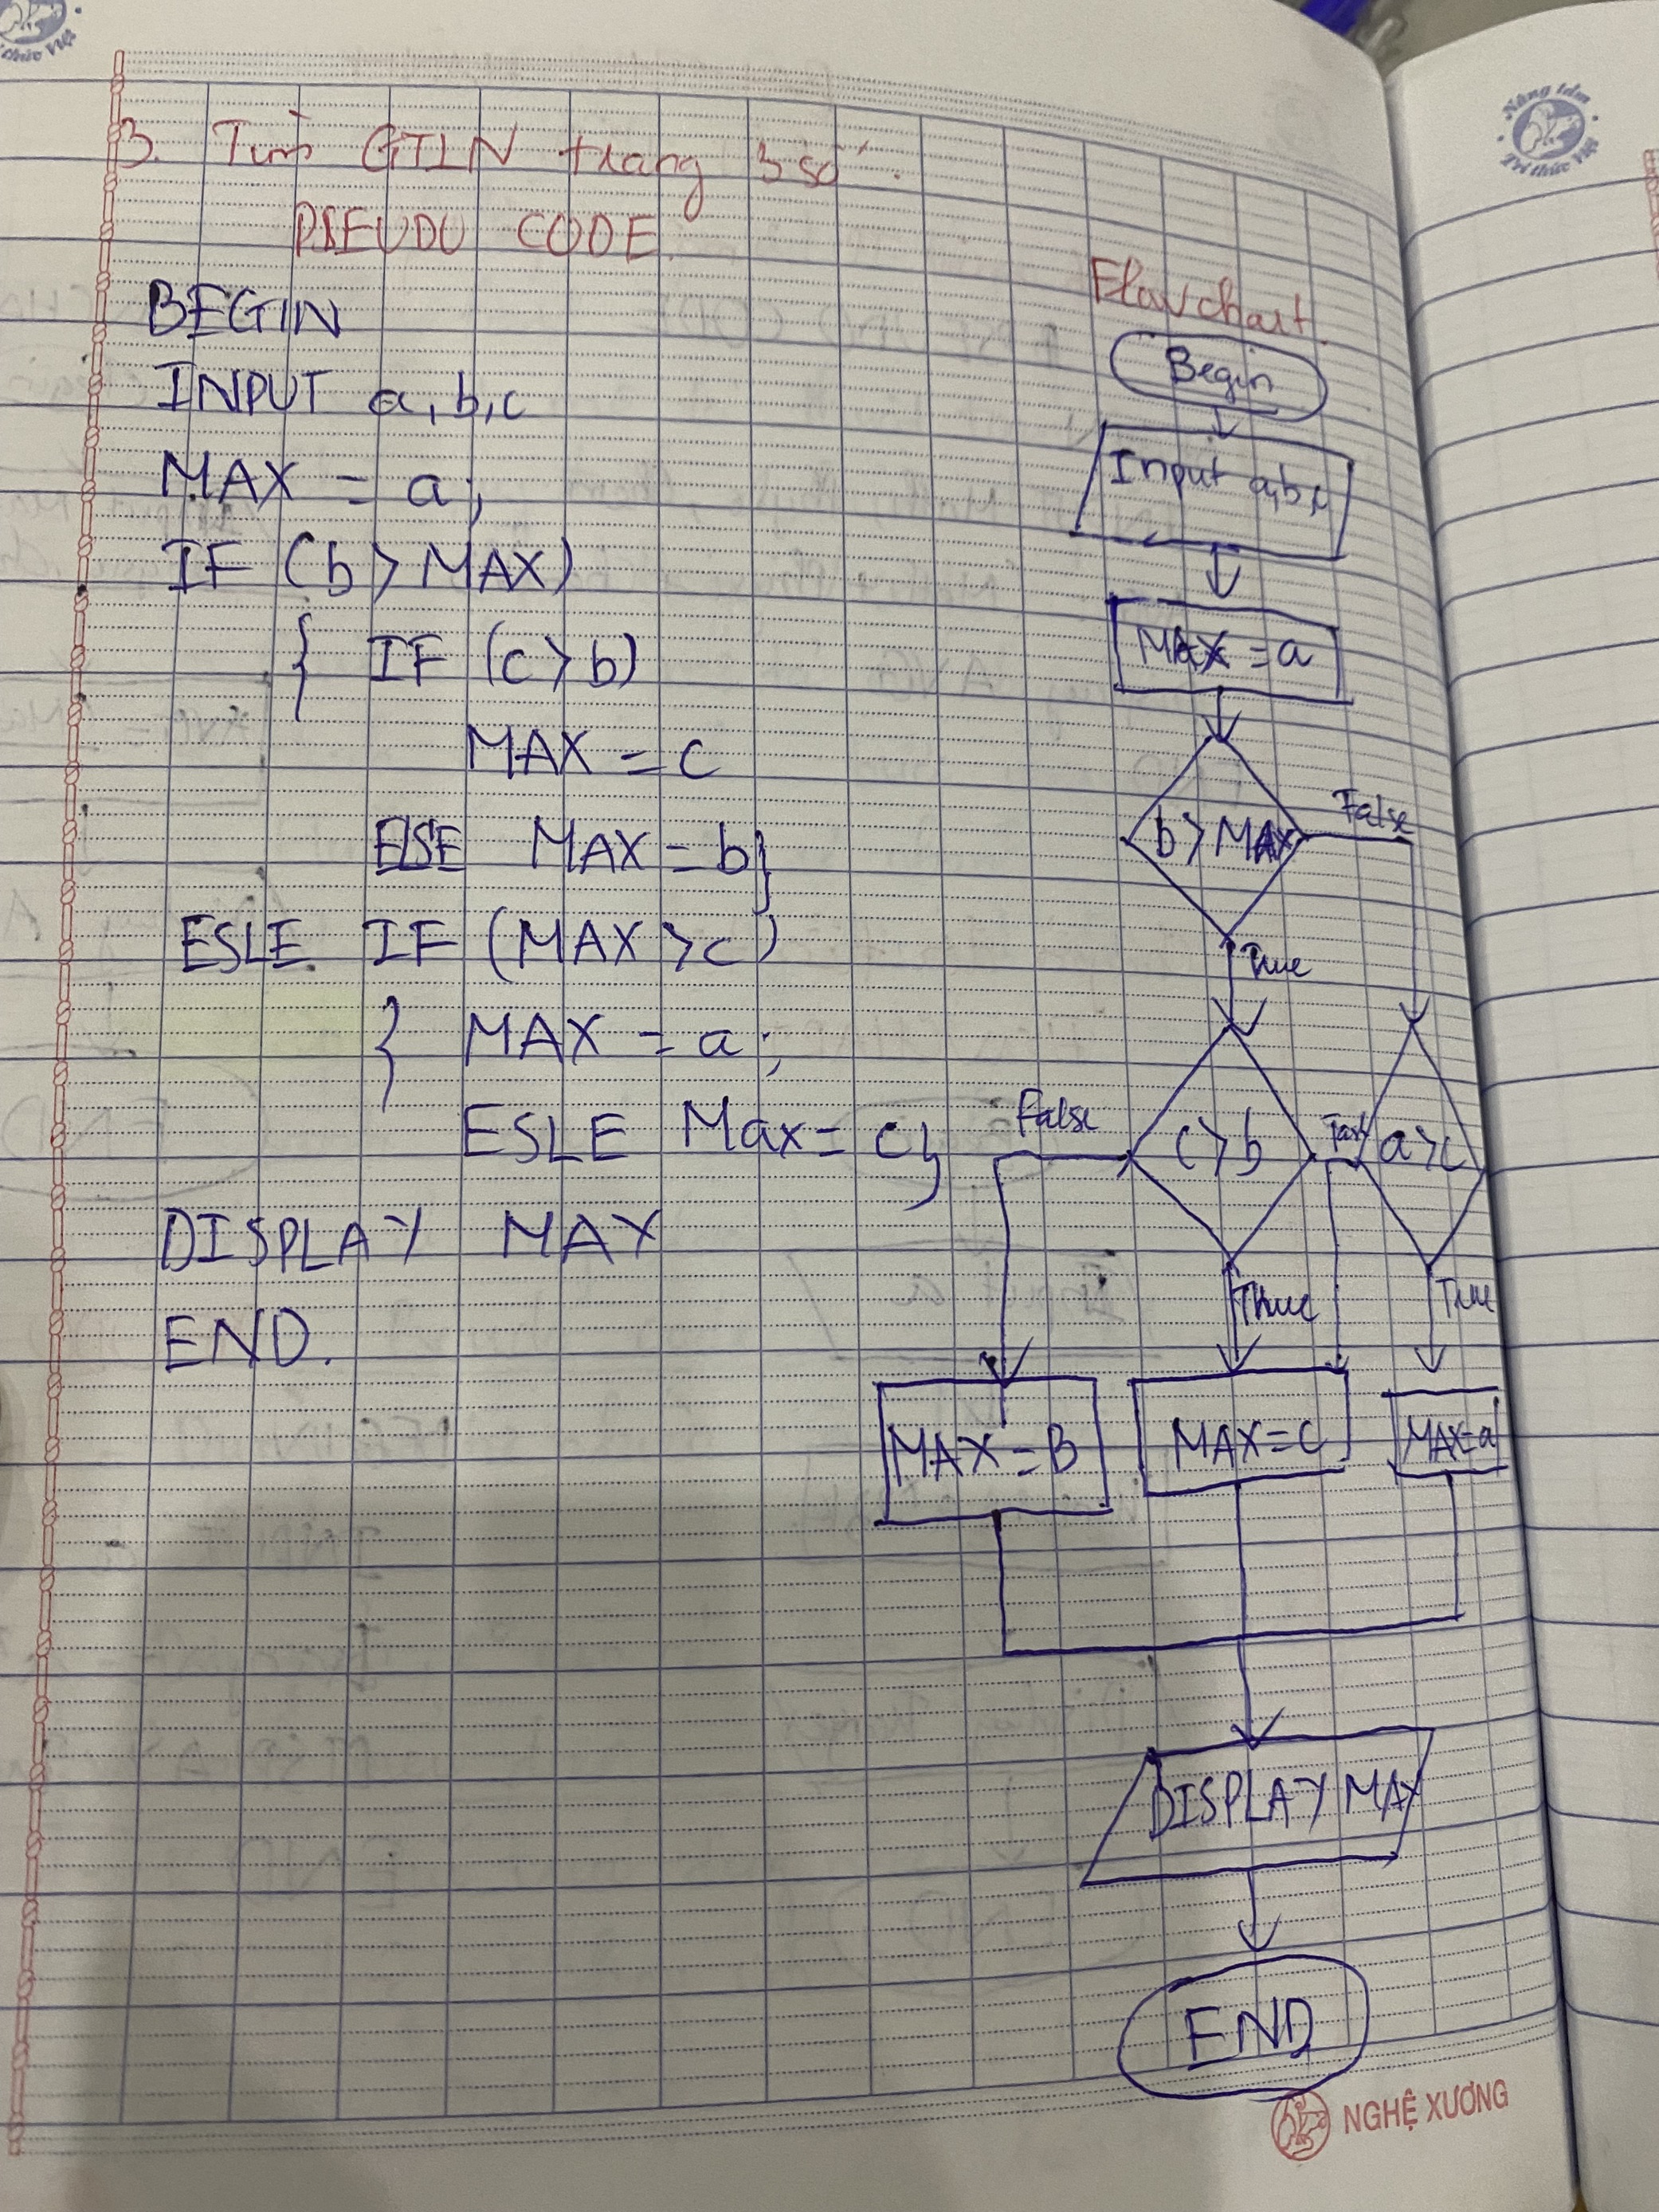 3. Tìm GTLN trang 3 số.
PSEUDU CODE
BEGIN
INPUT a, b, c
MAX = a;
IF (b > MAX)
{ IF (c > b)
MAX = c
ELSE MAX = b}
ESLE IF (MAX > c)
{ MAX = a;
ESLE Max = c}
DISPLAY MAX
END.
Flowchart
Begin
Input a,b,c
MAX = a
b > MAX
False
True
c > b
False
a > c
True
True
MAX = B
MAX = C
MAX = a
DISPLAY MAX
END
NGHỆ XƯƠNG
Nâng tầm
Trí thức Việt
thức Việt